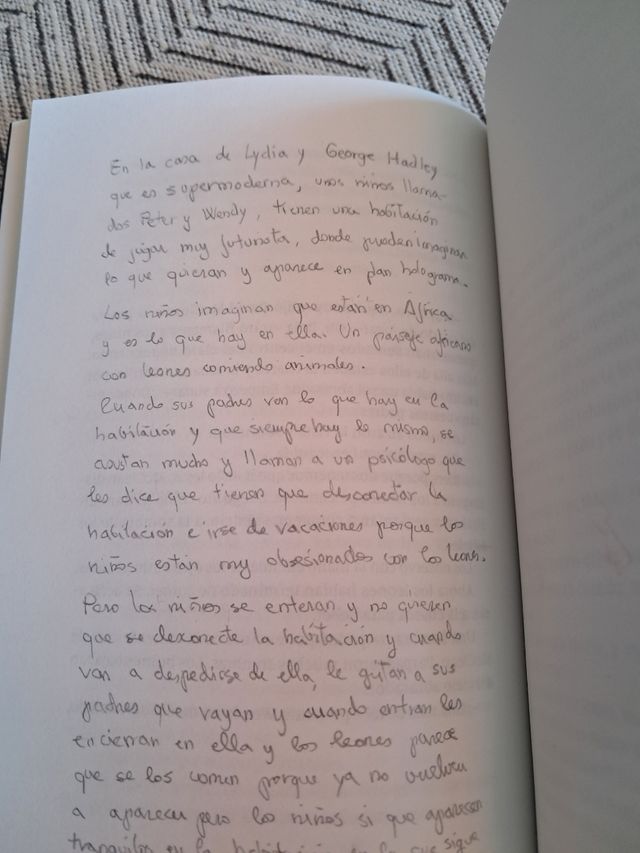 En la casa de Lydia y George Hadley
que es supermoderna, unos niños llama-
dos Peter y Wendy, tienen una habitación
de jugar muy futurista, donde pueden imaginar
lo que quieran y aparece en plan holograma.
Los niños imaginan que están en África
y es lo que hay en ella. Un paisaje africano
con leones comiendo animales.
Cuando sus padres ven lo que hay en la
habitación y que siempre hay lo mismo, se
asustan mucho y llaman a un psicólogo que
les dice que tienen que desconectar la
habitación e irse de vacaciones porque los
niños están muy obsesionados con los leones.
Pero los niños se enteran y no quieren
que se desconecte la habitación y cuando
van a despedirse de ella, le gritan a sus
padres que vayan y cuando entran les
encierran en ella y los leones parece
que se los comen porque ya no vuelven
a aparecer pero los niños si que aparecen
tranquilos en la habitación en la que sigue